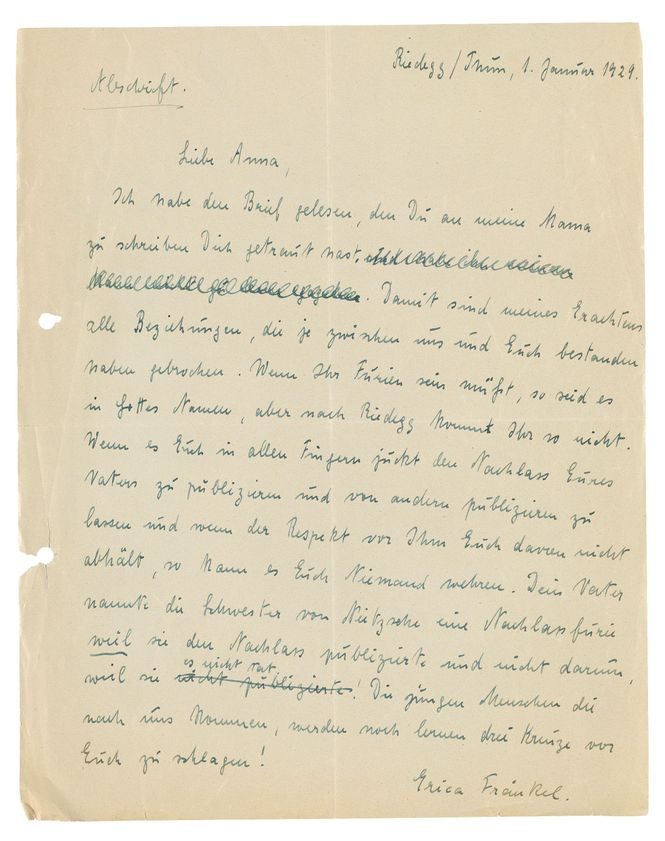 Riedegg/Thun, 1. Januar 1929.
Abschrift.
Liebe Anna,
Ich habe den Brief gelesen, den Du an meine Mama
zu schreiben Dich getraut hast.
. Damit sind meines Erachtens
alle Beziehungen, die je zwischen uns und Euch bestanden
haben gebrochen. Wenn Ihr Furien sein müsst, so seid es
in Gottes Namen, aber nach Riedegg kommt Ihr so nicht.
Wenn es Euch in allen Fingern juckt den Nachlass Eures
Vaters zu publizieren und von andern publizieren zu
lassen und wenn der Respekt vor Ihm Euch davon nicht
abhält, so kann es Euch Niemand wehren. Dein Vater
nannte die Schwester von Nietzsche eine Nachlassfurie
weil sie den Nachlass publizierte und nicht darum,
es nicht tat.
weil sie nicht publizierte! Die jungen Menschen die
nach uns kommen, werden noch lernen drei Kreuze vor
Euch zu schlagen!
Erica Fränkel.